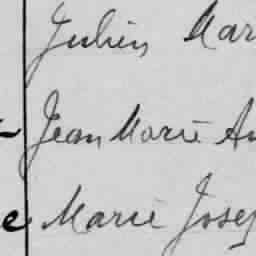 Julien Mar
Jean Marie An
e Marie Josep